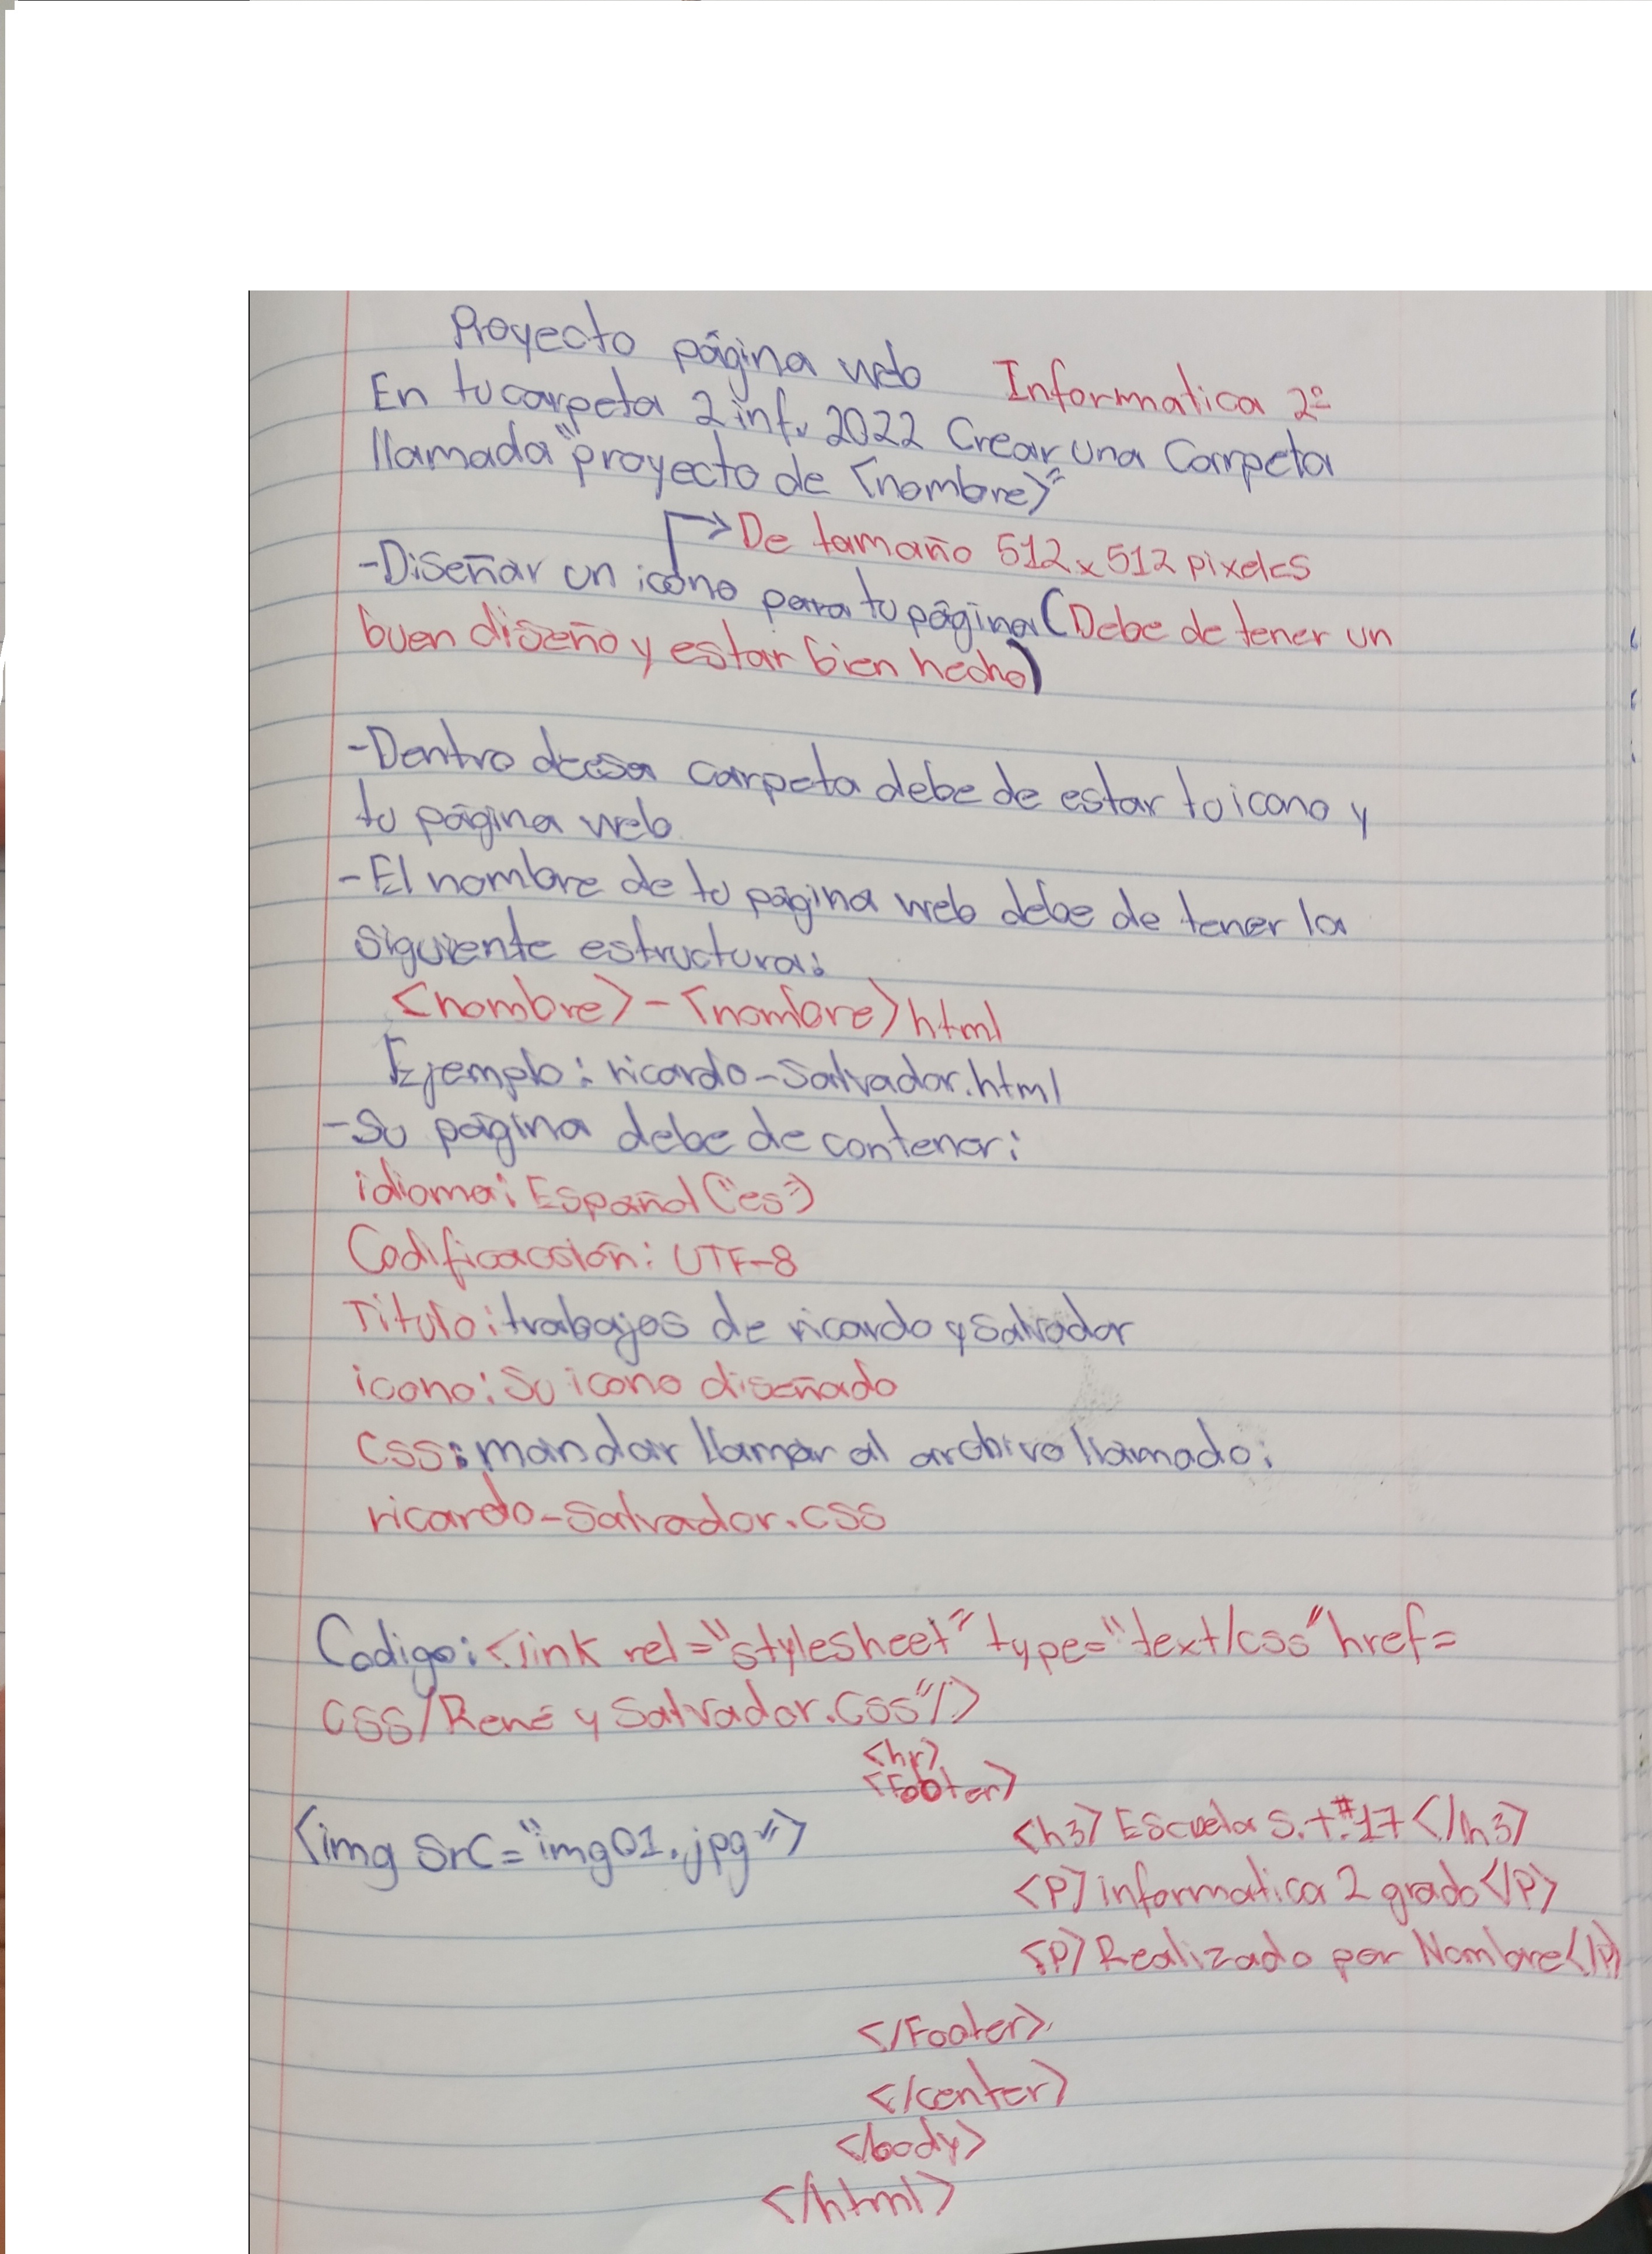 Proyecto página web Informatica 2°
En tu carpeta 2 inf. 2022 Crear una Carpeta
llamada "proyecto de <nombre>"
De tamaño 512x512 pixeles
-Diseñar un icono para tu página (Debe de tener un
buen diseño y estar bien hecho)
-Dentro de esa carpeta debe de estar tu icono y
tu página web
-El nombre de tu página web debe de tener la
siguiente estructura:
<nombre>-<nombre>html
Ejemplo: ricardo-Salvador.html
-Su página debe de contener:
idioma: Español ("es")
Codificacción: UTF-8
Titulo: trabajos de ricardo y Salvador
icono: Su icono diseñado
CSS: mandar llamar al archivo llamado:
ricardo-Salvador.css
Codigo: <link rel="stylesheet" type="text/css" href=
css/René y Salvador.css"/>
<hr>
<Footer>
<img Src="img01.jpg">
<h3> Escuela S.t.#17 </h3>
<P> informatica 2 grado </P>
<P> Realizado por Nombre </P>
</Footer>
</center>
</body>
</html>